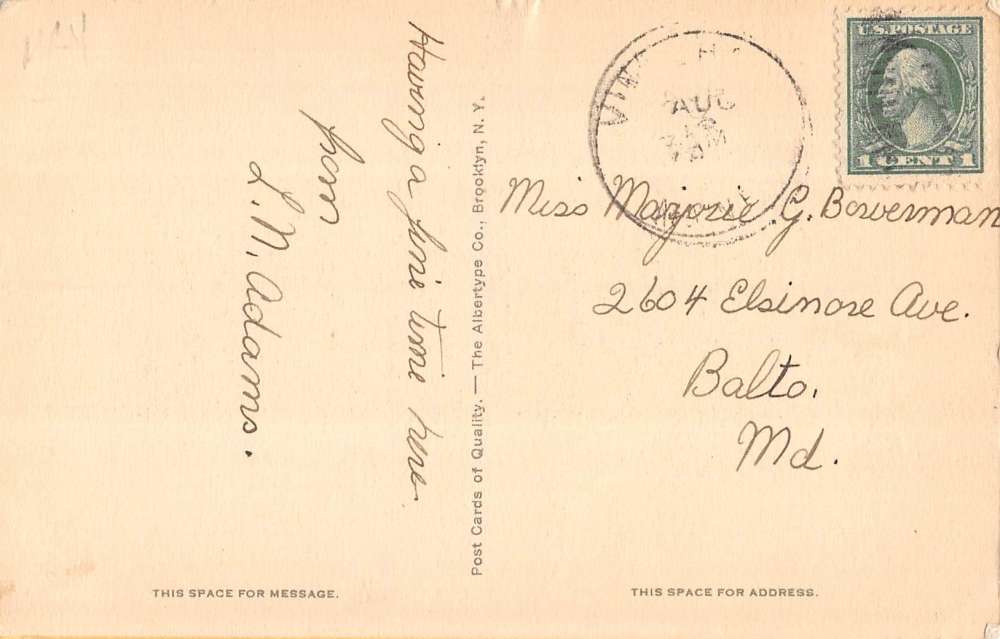 Having a fine time here.
from
L. N. Adams.
Post Cards of Quality. — The Albertype Co., Brooklyn, N. Y.
AUG
U.S. POSTAGE
1 CENT 1
Miss Marjorie G. Bowerman
2604 Elsinore Ave.
Balto.
Md.
THIS SPACE FOR MESSAGE.
THIS SPACE FOR ADDRESS.